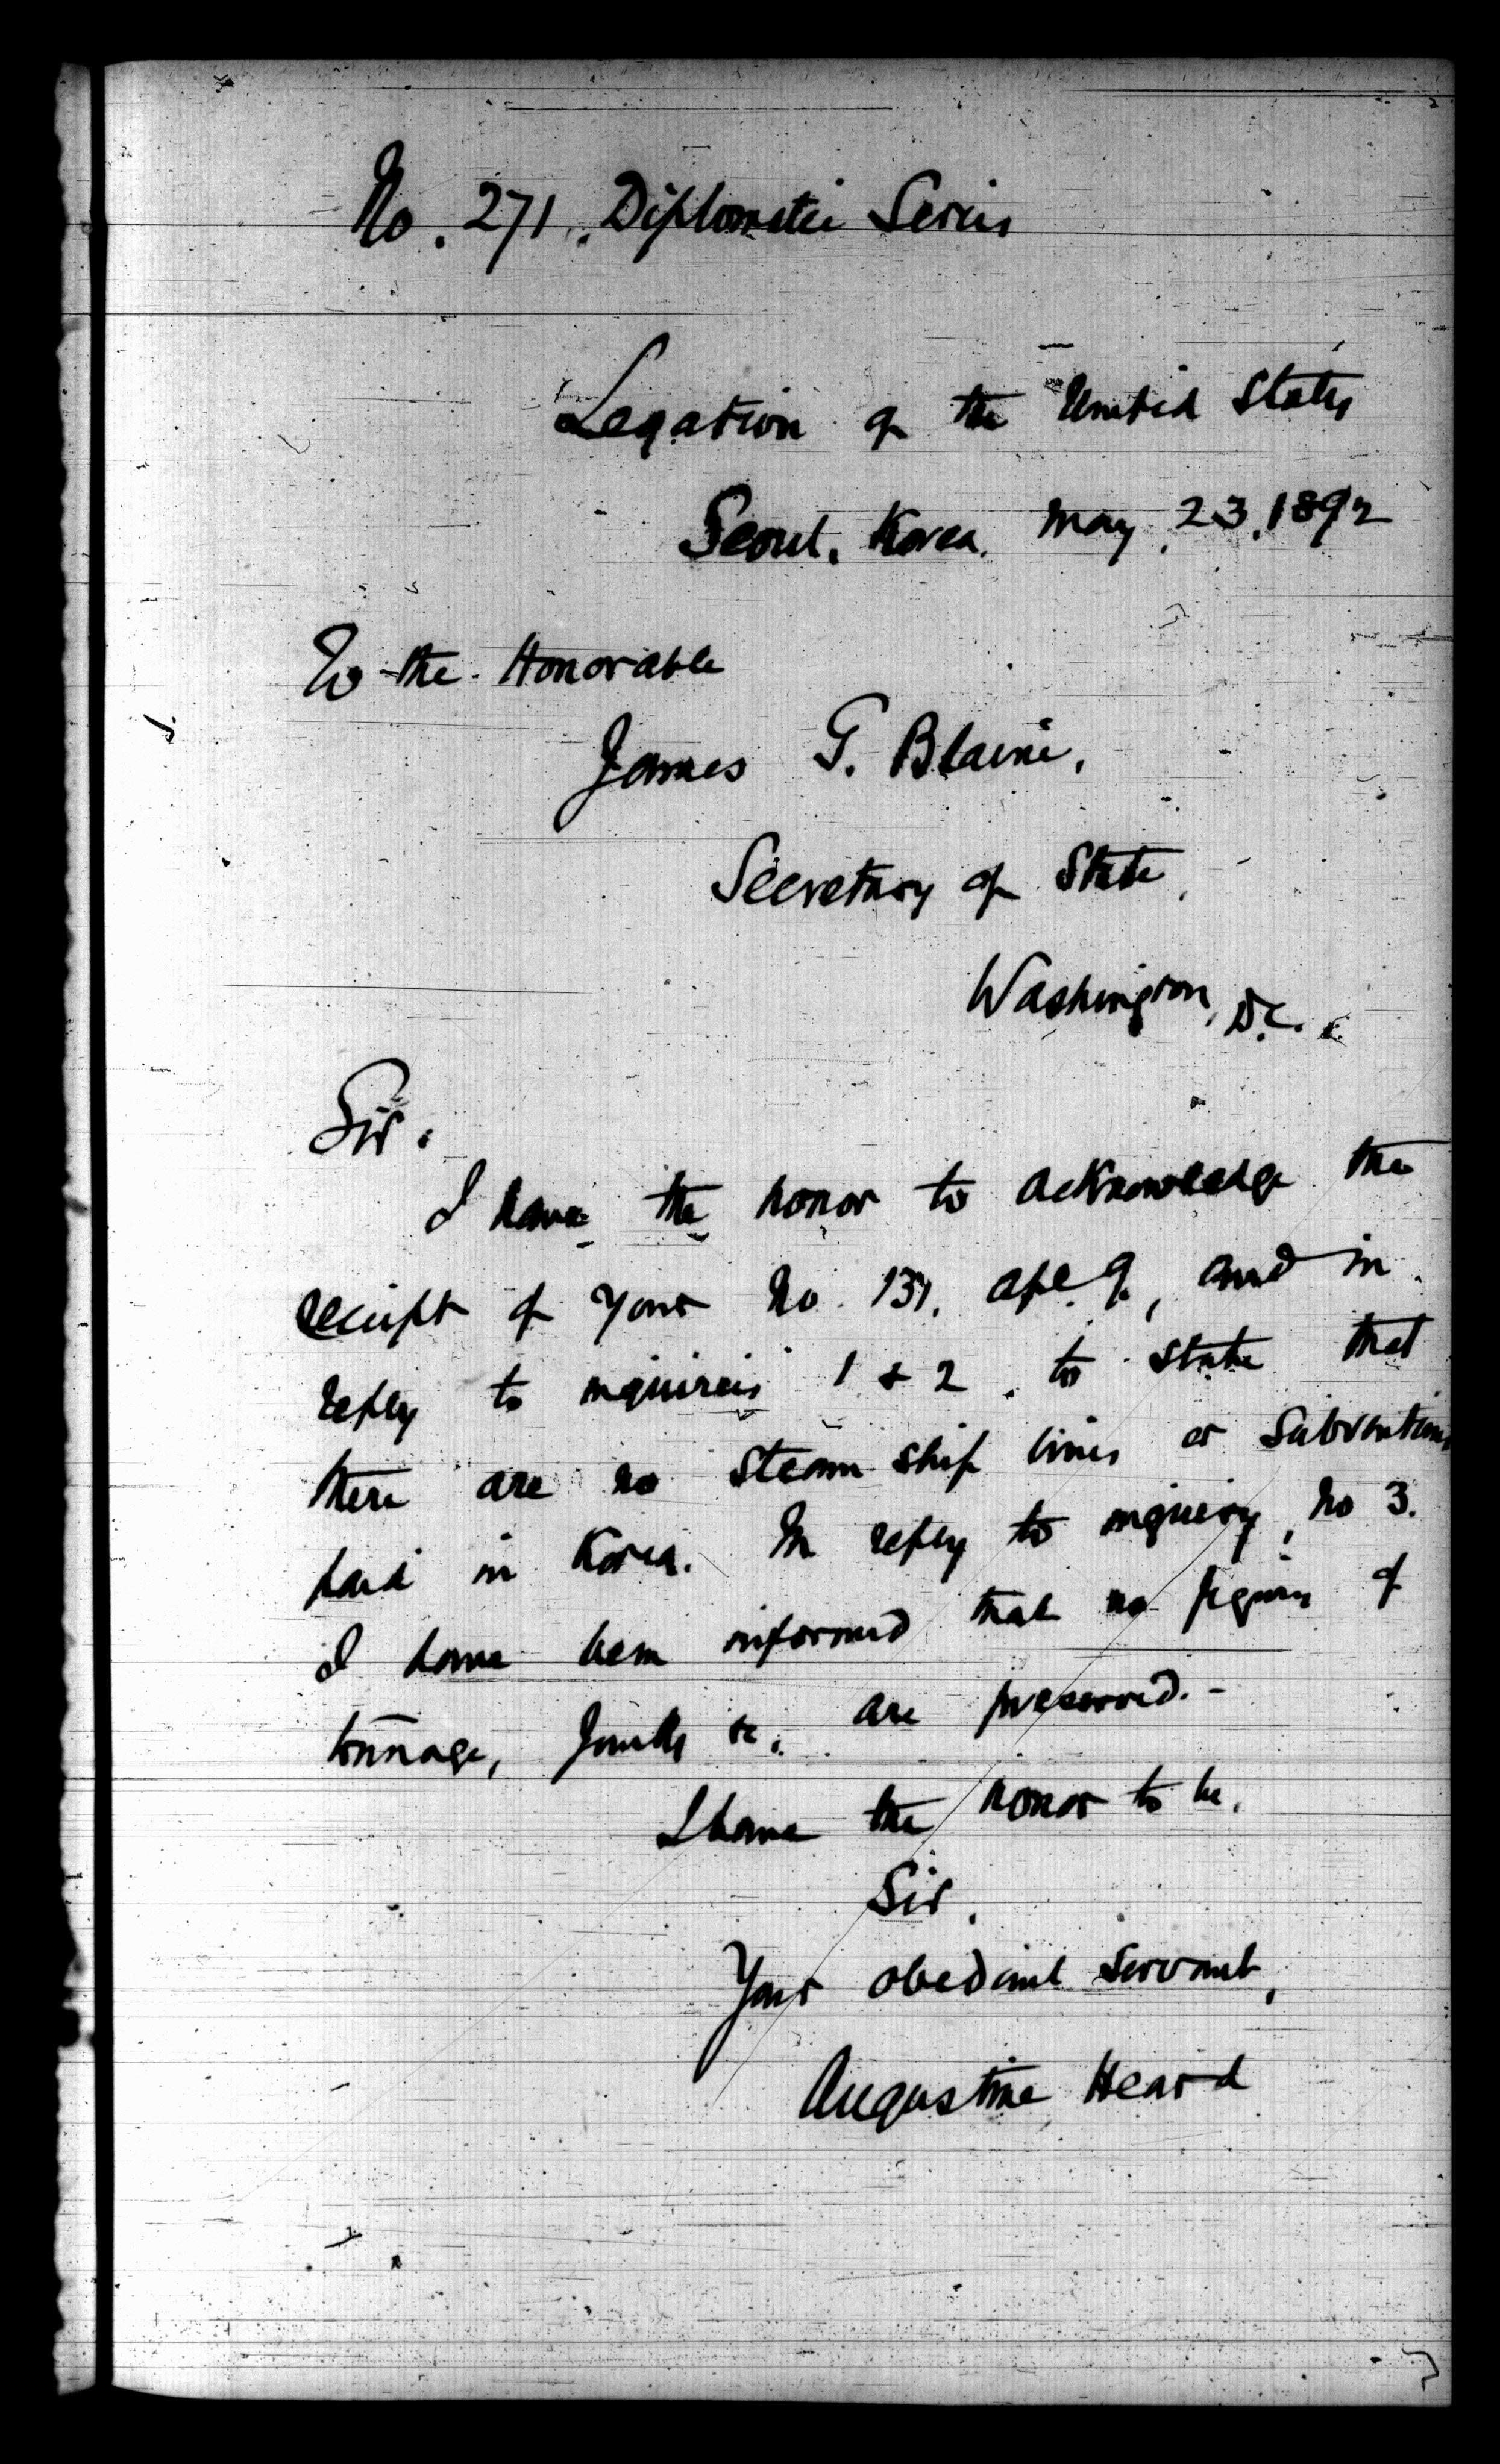 No. 271. Diplomatic Series
Legation of the United States
Seoul, Korea, May, 23, 1892
To the Honorable
James G. Blaine,
Secretary of State,
Washington, D.C.
Sir:
I have the honor to acknowledge the
receipt of your No. 131, Apl 9, and in
reply to inquiries 1 & 2, to state that
there are no steam ship lines or subventions
paid in Korea. In reply to inquiry, No 3.
I have been informed that no figures of
tonnage, &c. are preserved.-
I have the honor to be,
Sir,
Your obedient servant,
Augustine Heard